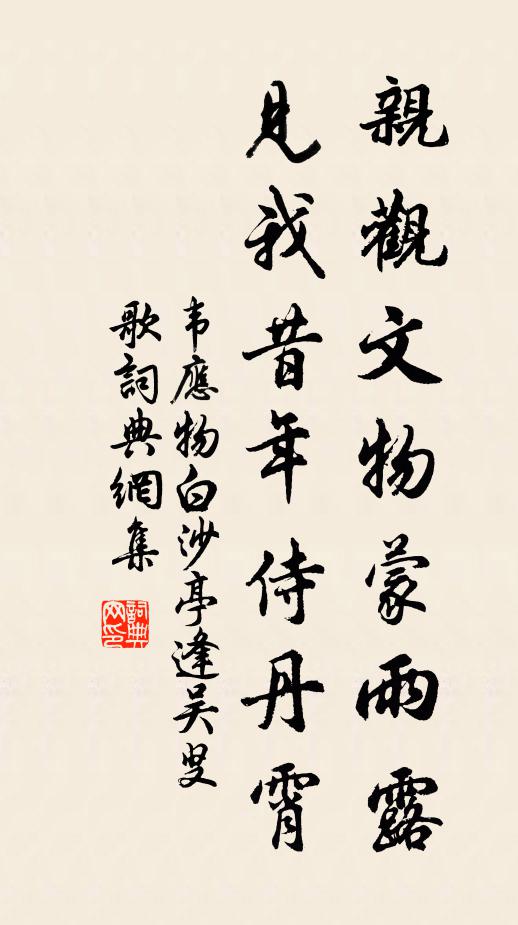 親觀文物蒙雨露
見我昔年侍丹霄
韦應物白沙亭逢吴叟
歌詞典網集
詞典网印